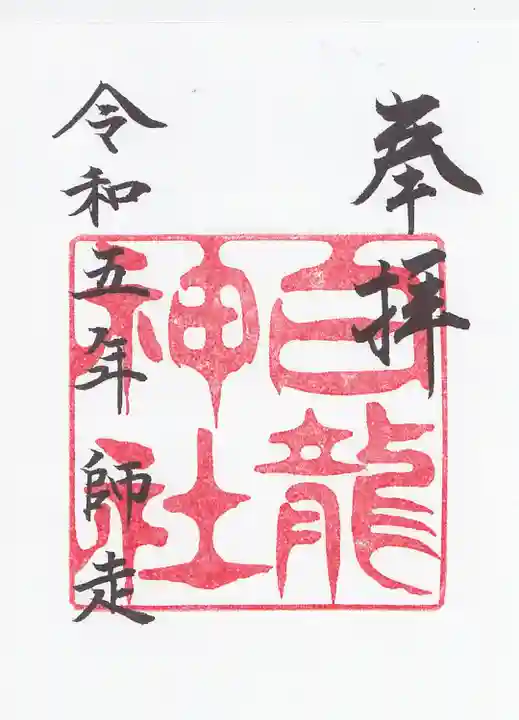 奉拝
白龍
神社
令和五年 師走